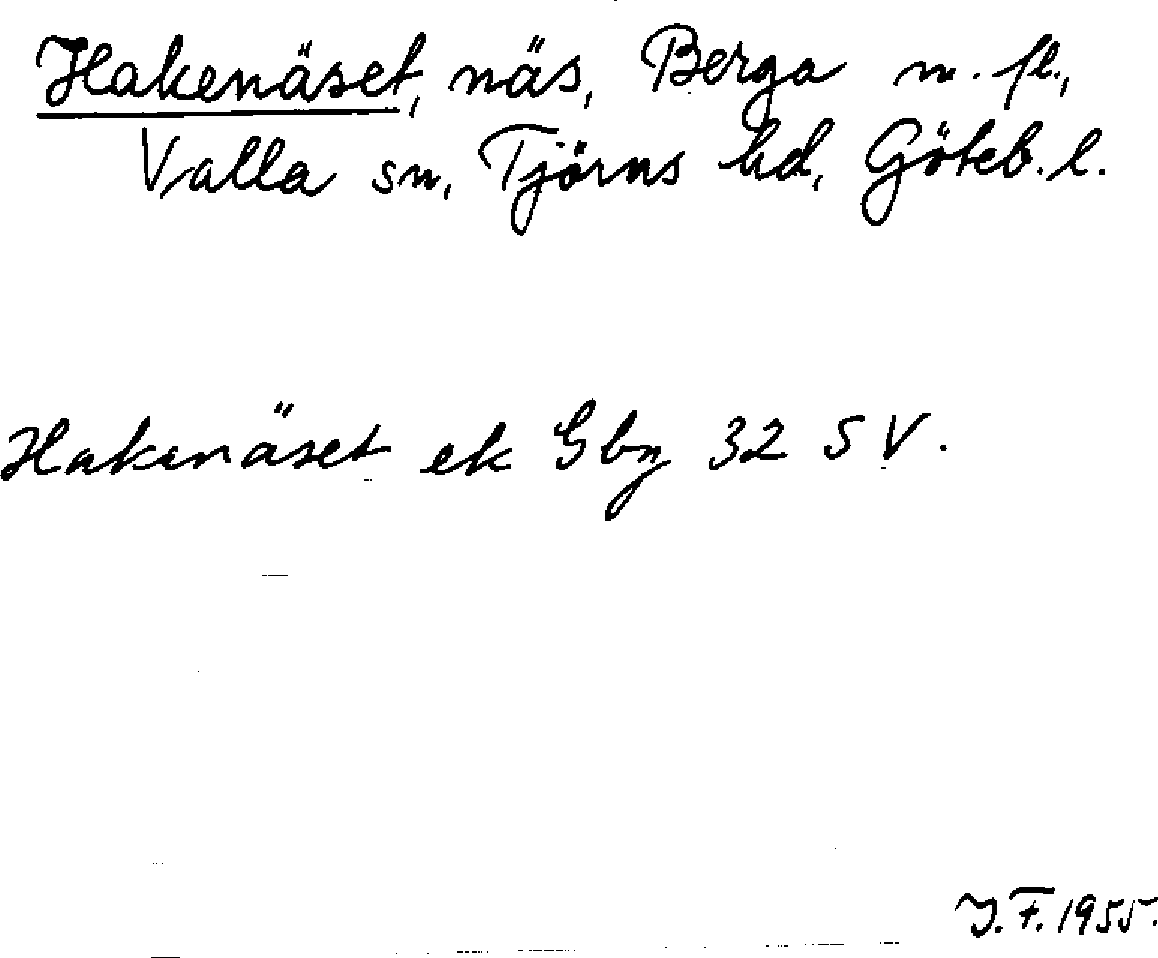 Hakenäset, näs, Berga m. fl.,
Valla sn, Tjörns hd, Göteb. l.
Hakenäset ek Gbg 32 SV.
J.F. 1955.